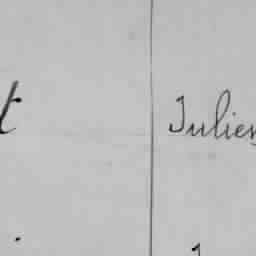 t Julien